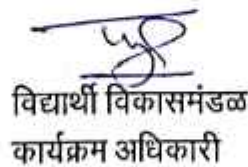 विद्यार्थी विकासमंडळ
कार्यक्रम अधिकारी